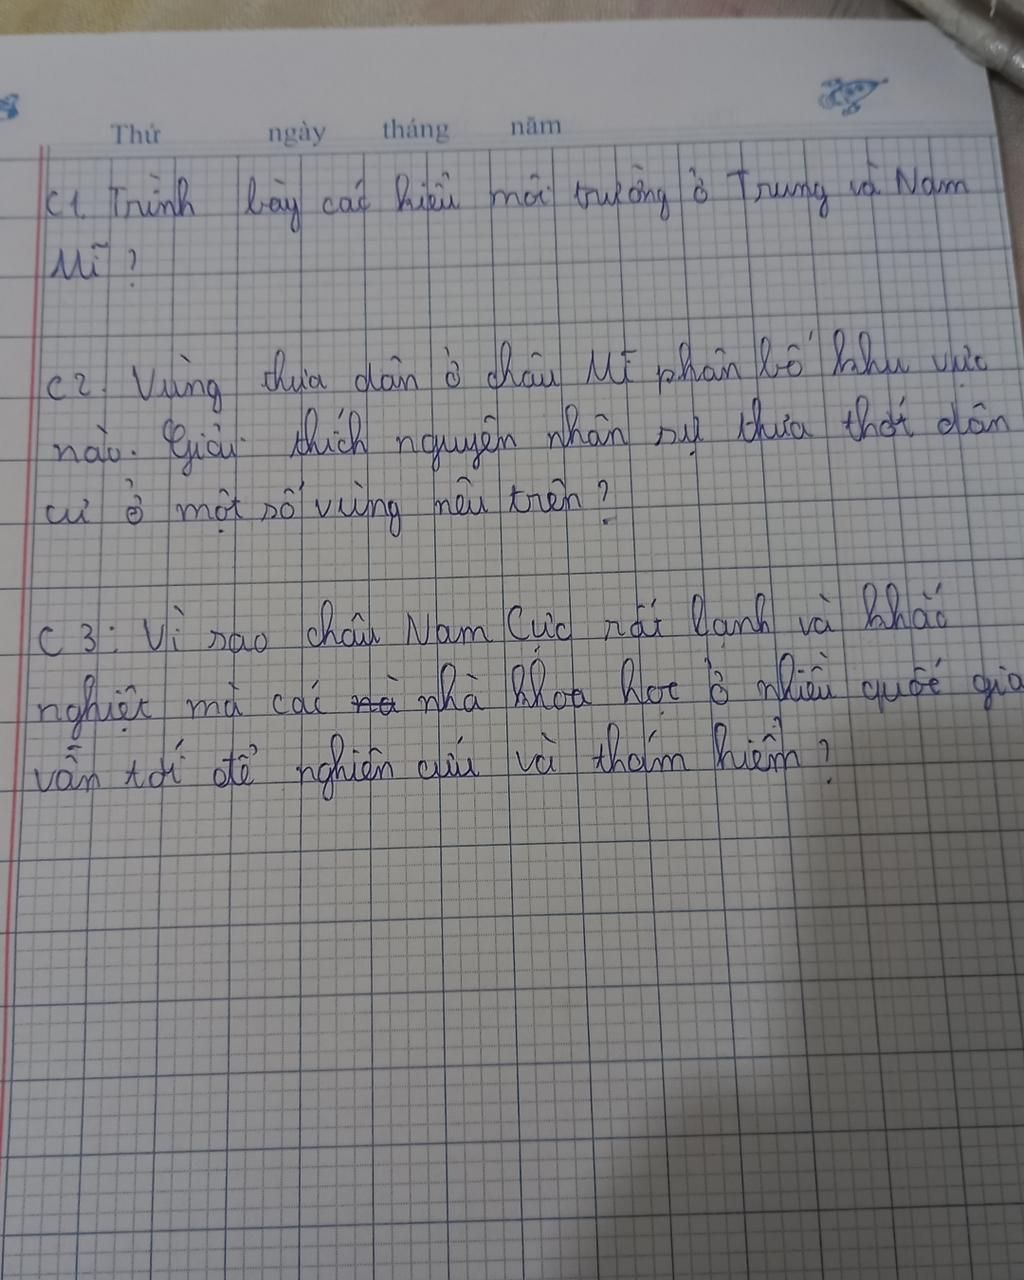 Thứ ngày tháng năm
C1. Trình bày các kiểu môi trường ở Trung và Nam
Mĩ ?
C2. Vùng thưa dân ở châu Mĩ phân bố khu vực
nào. Giải thích nguyên nhân sự thưa thớt dân
cư ở một số vùng nêu trên ?
C3: Vì sao châu Nam Cực rất lạnh và khắc
nghiệt mà các nhà khoa học ở nhiều quốc gia
vẫn tới để nghiên cứu và thám hiểm ?